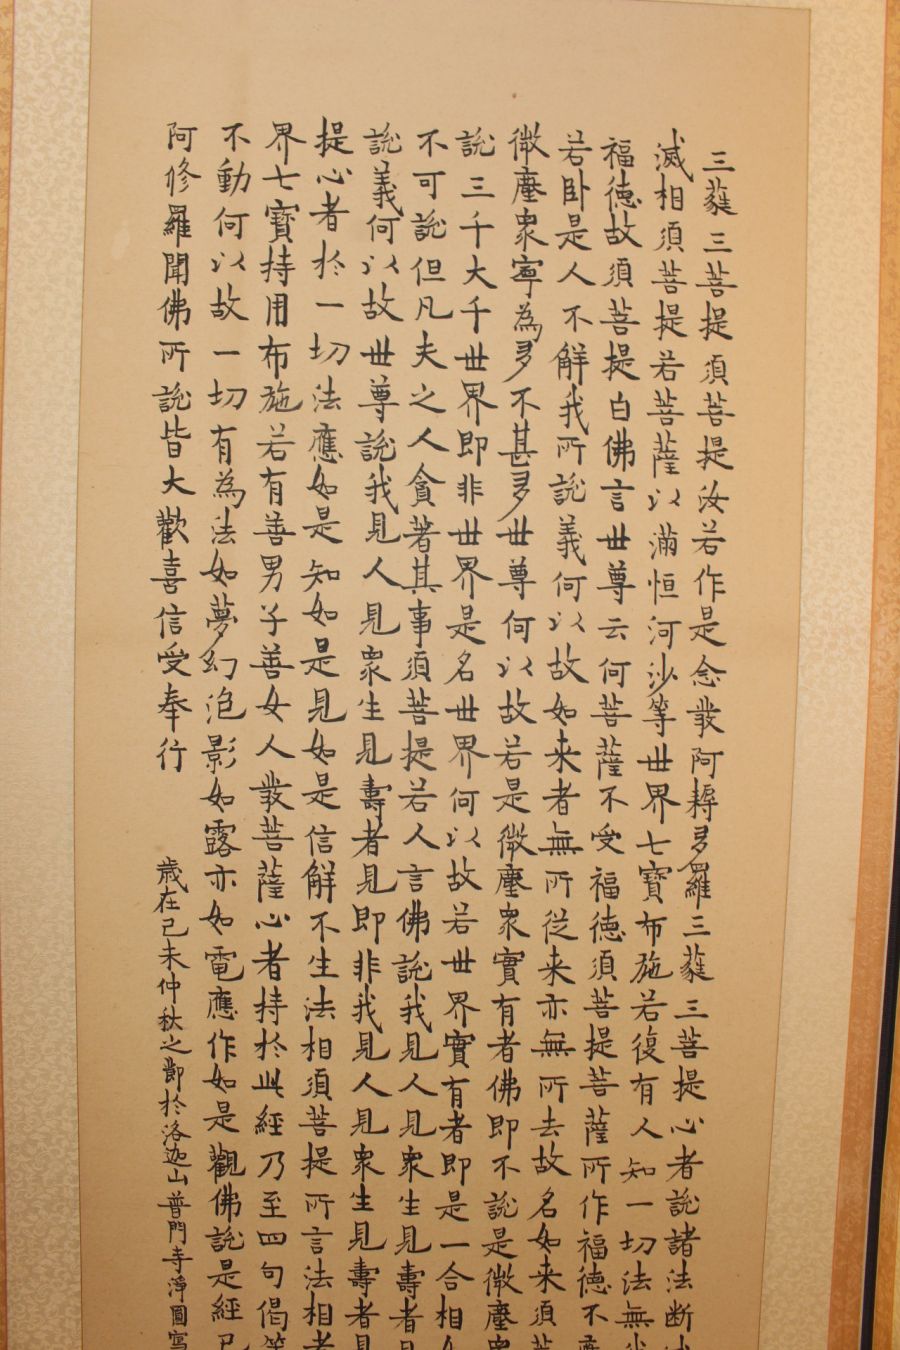 三藐三菩提須菩提汝若作是念發阿耨多羅三藐三菩提心者說諸法断
滅相須菩提若菩薩以滿恒河沙等世界七寶布施若復有人知一切法無
福德故須菩提白佛言世尊云何菩薩不受福德須菩提菩薩所作福德不
若卧是人不解我所說義何以故如来者無所從来亦無所去故名如来須
微塵衆寧為多不甚多世尊何以故若是微塵衆實有者佛即不說是微塵
說三千大千世界即非世界是名世界何以故若世界實有者即是一合相
不可說但凡夫之人貪著其事須菩提若人言佛說我見人見衆生見壽者
說義何以故世尊說我見人見衆生見壽者見即非我見人見衆生見壽者
提心者於一切法應如是知如是見如是信解不生法相須菩提所言法相
界七寶持用布施若有善男子善女人發菩薩心者持於此經乃至四句偈
不動何以故一切有為法如夢幻泡影如露亦如電應作如是觀佛說是經
阿修羅聞佛所說皆大歡喜信受奉行
歲在己未仲秋之節於洛迦山普門寺淨圓寫